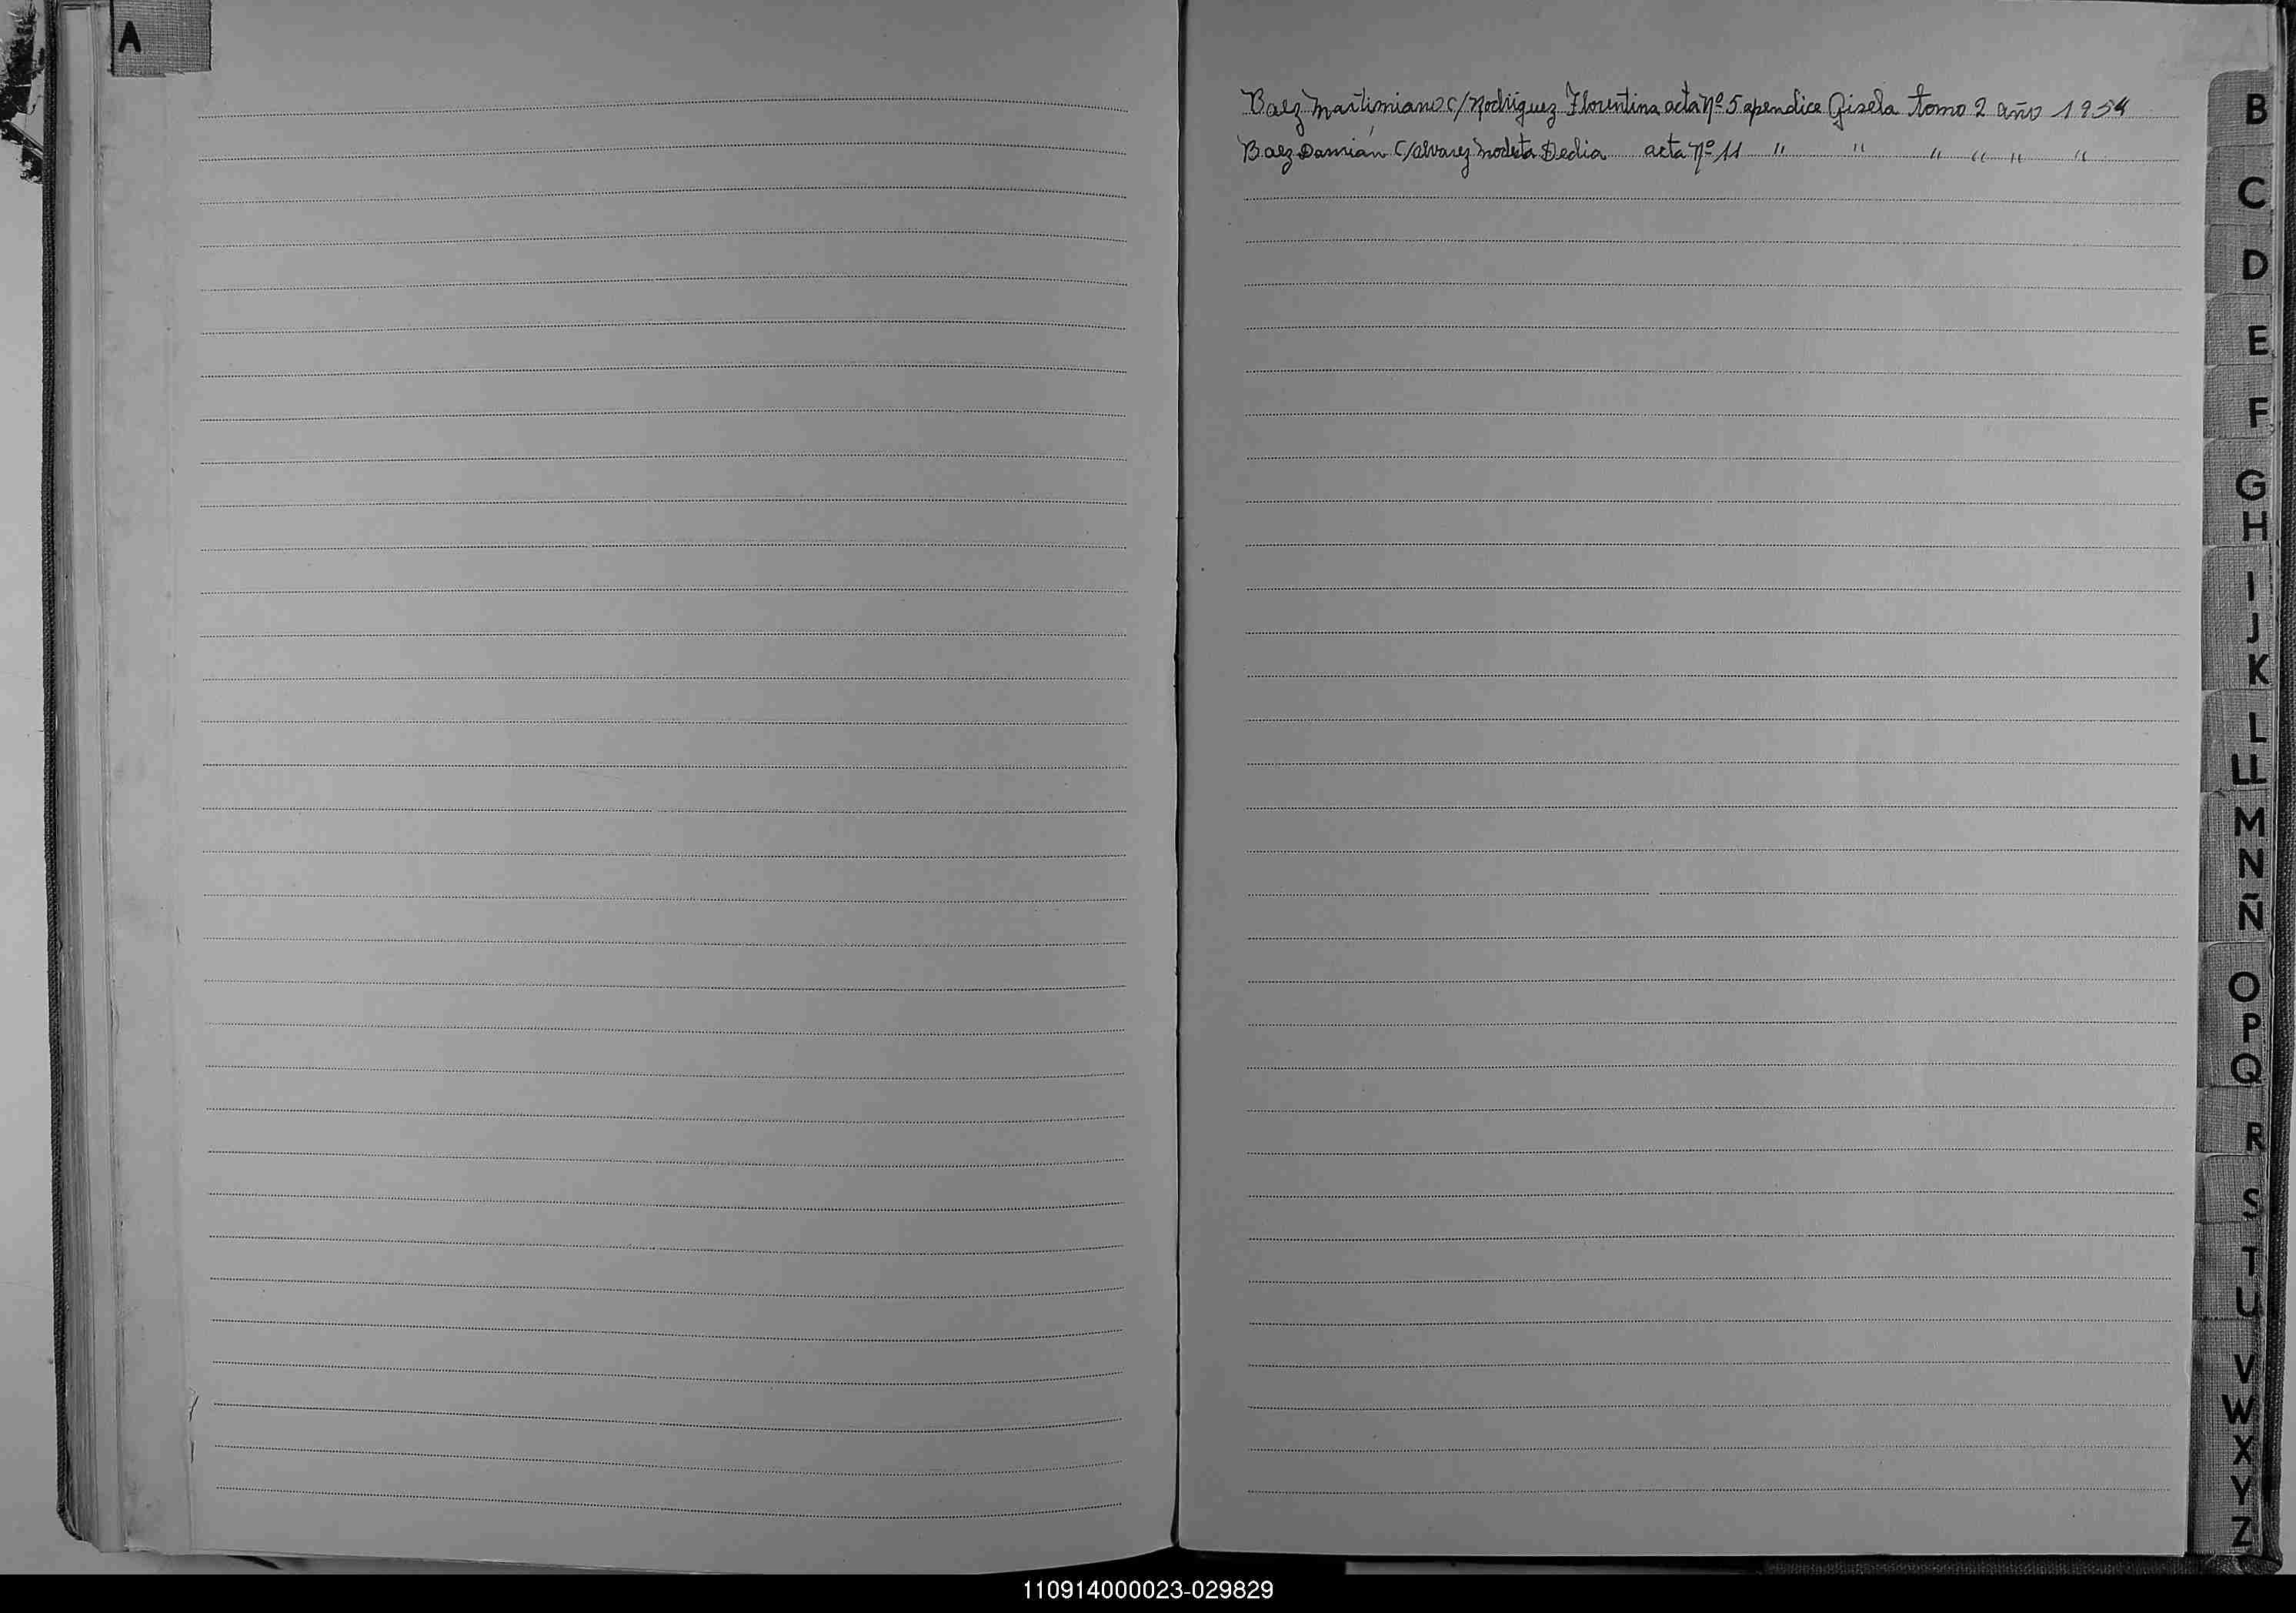 A
Baez Martimiano c/ Rodriguez Florentina acta Nº 5 apendice Gisela tomo 2 año 1954
Baez Damián c/ Alvarez Modesta Dedia acta Nº 11 " " " " " "
B
C
D
E
F
G
H
I
J
K
L
LL
M
N
Ñ
O
P
Q
R
S
T
U
V
W
X
Y
Z
110914000023-029829